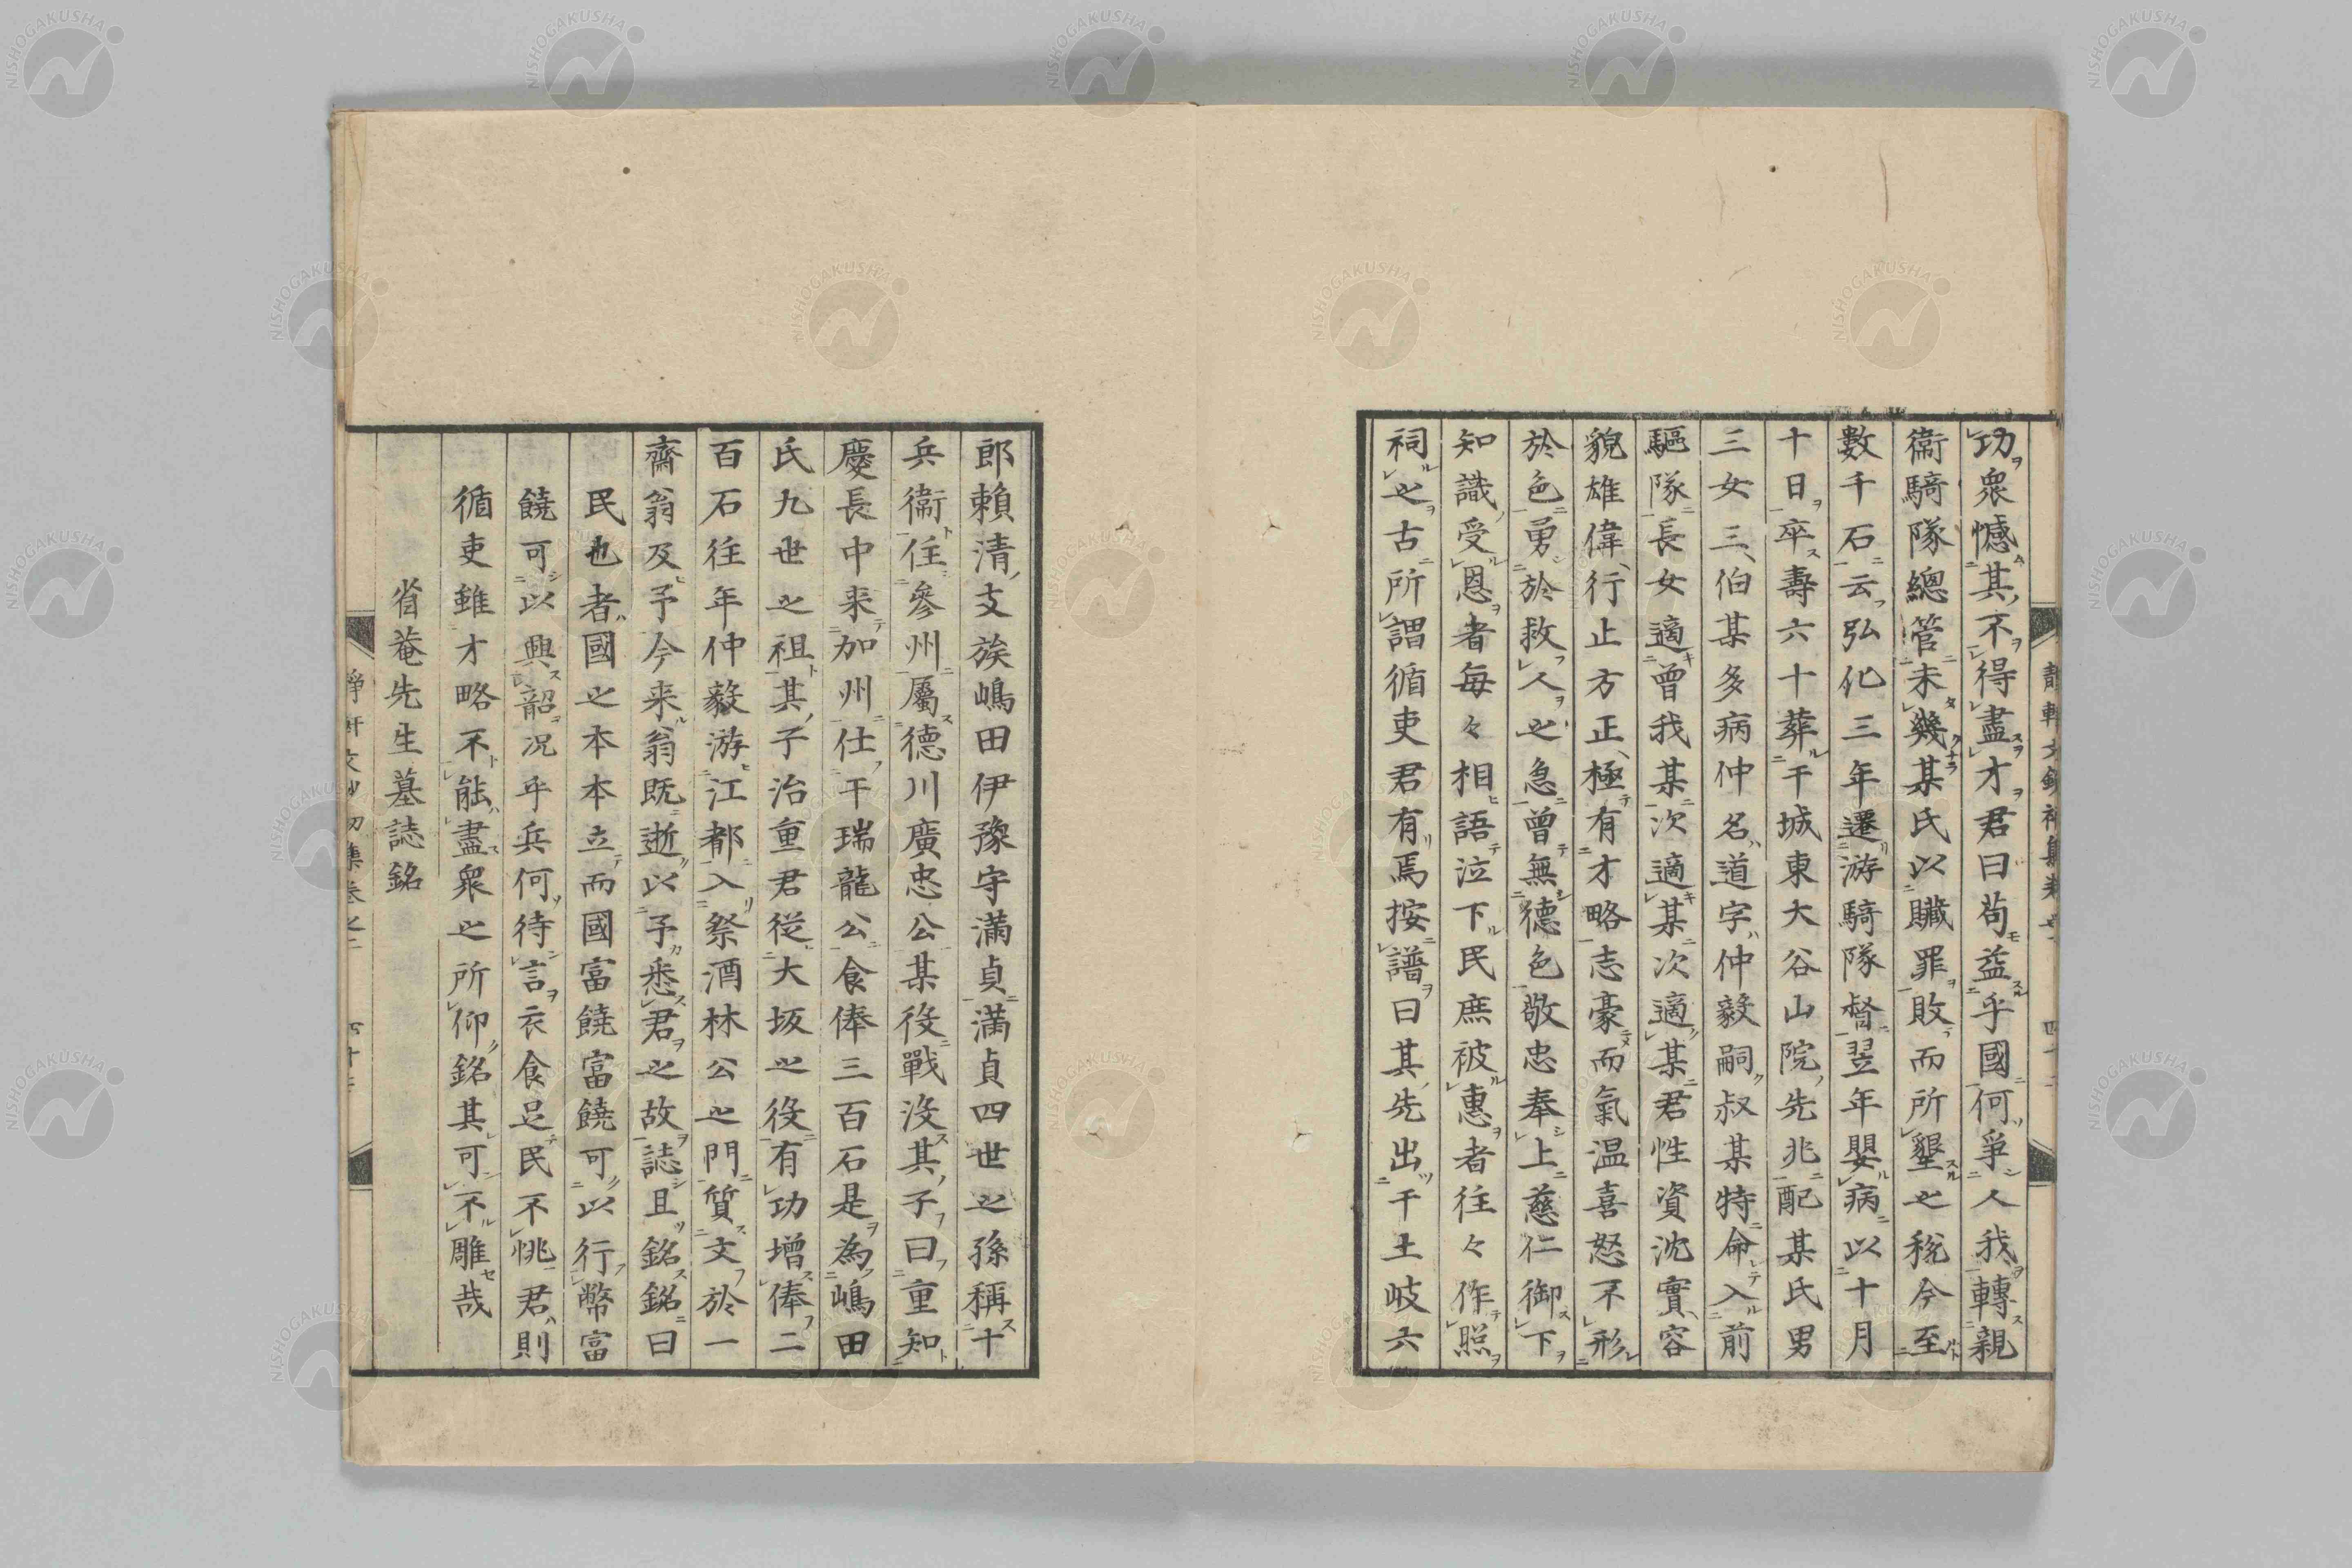 功衆憾其不得盡才君曰苟益乎國何爭人我轉親
衞騎隊總管未幾某氏以贓罪敗而所墾之稅今至
數千石云弘化三年遷游騎隊督翌年嬰病以十月
十日卒壽六十葬干城東大谷山院先兆配某氏男
三女三伯某多病仲名道字仲毅嗣叔某特命入前
驅隊長女適曾我某次適某次適某君性資沈實容
貌雄偉行止方正極有才略志豪而氣温喜怒不形
於色勇於救人之急曾無德色敬忠奉上慈仁御下
知識受恩者每々相語泣下民庶被惠者往々作照
祠之古所謂循吏君有焉按譜曰其先出干土岐六
郎頼清支族嶋田伊豫守滿貞滿貞四世之孫稱十
兵衞住參州屬德川廣忠公某役戰沒其子曰重知
慶長中来加州仕干瑞龍公食俸三百石是為嶋田
氏九世之祖其子治重君從大坂之役有功增俸二
百石往年仲毅游江都入祭酒林公之門質文於一
齋翁及予今来翁既逝以予悉君之故誌且銘銘曰
民也者國之本本立而國富饒富饒可以行幣富
饒可以興韶况乎兵何待言衣食足民不恌君則
循吏雖才略不能盡衆之所仰銘其可不雕哉
省菴先生墓誌銘
NISHOGAKUSHA